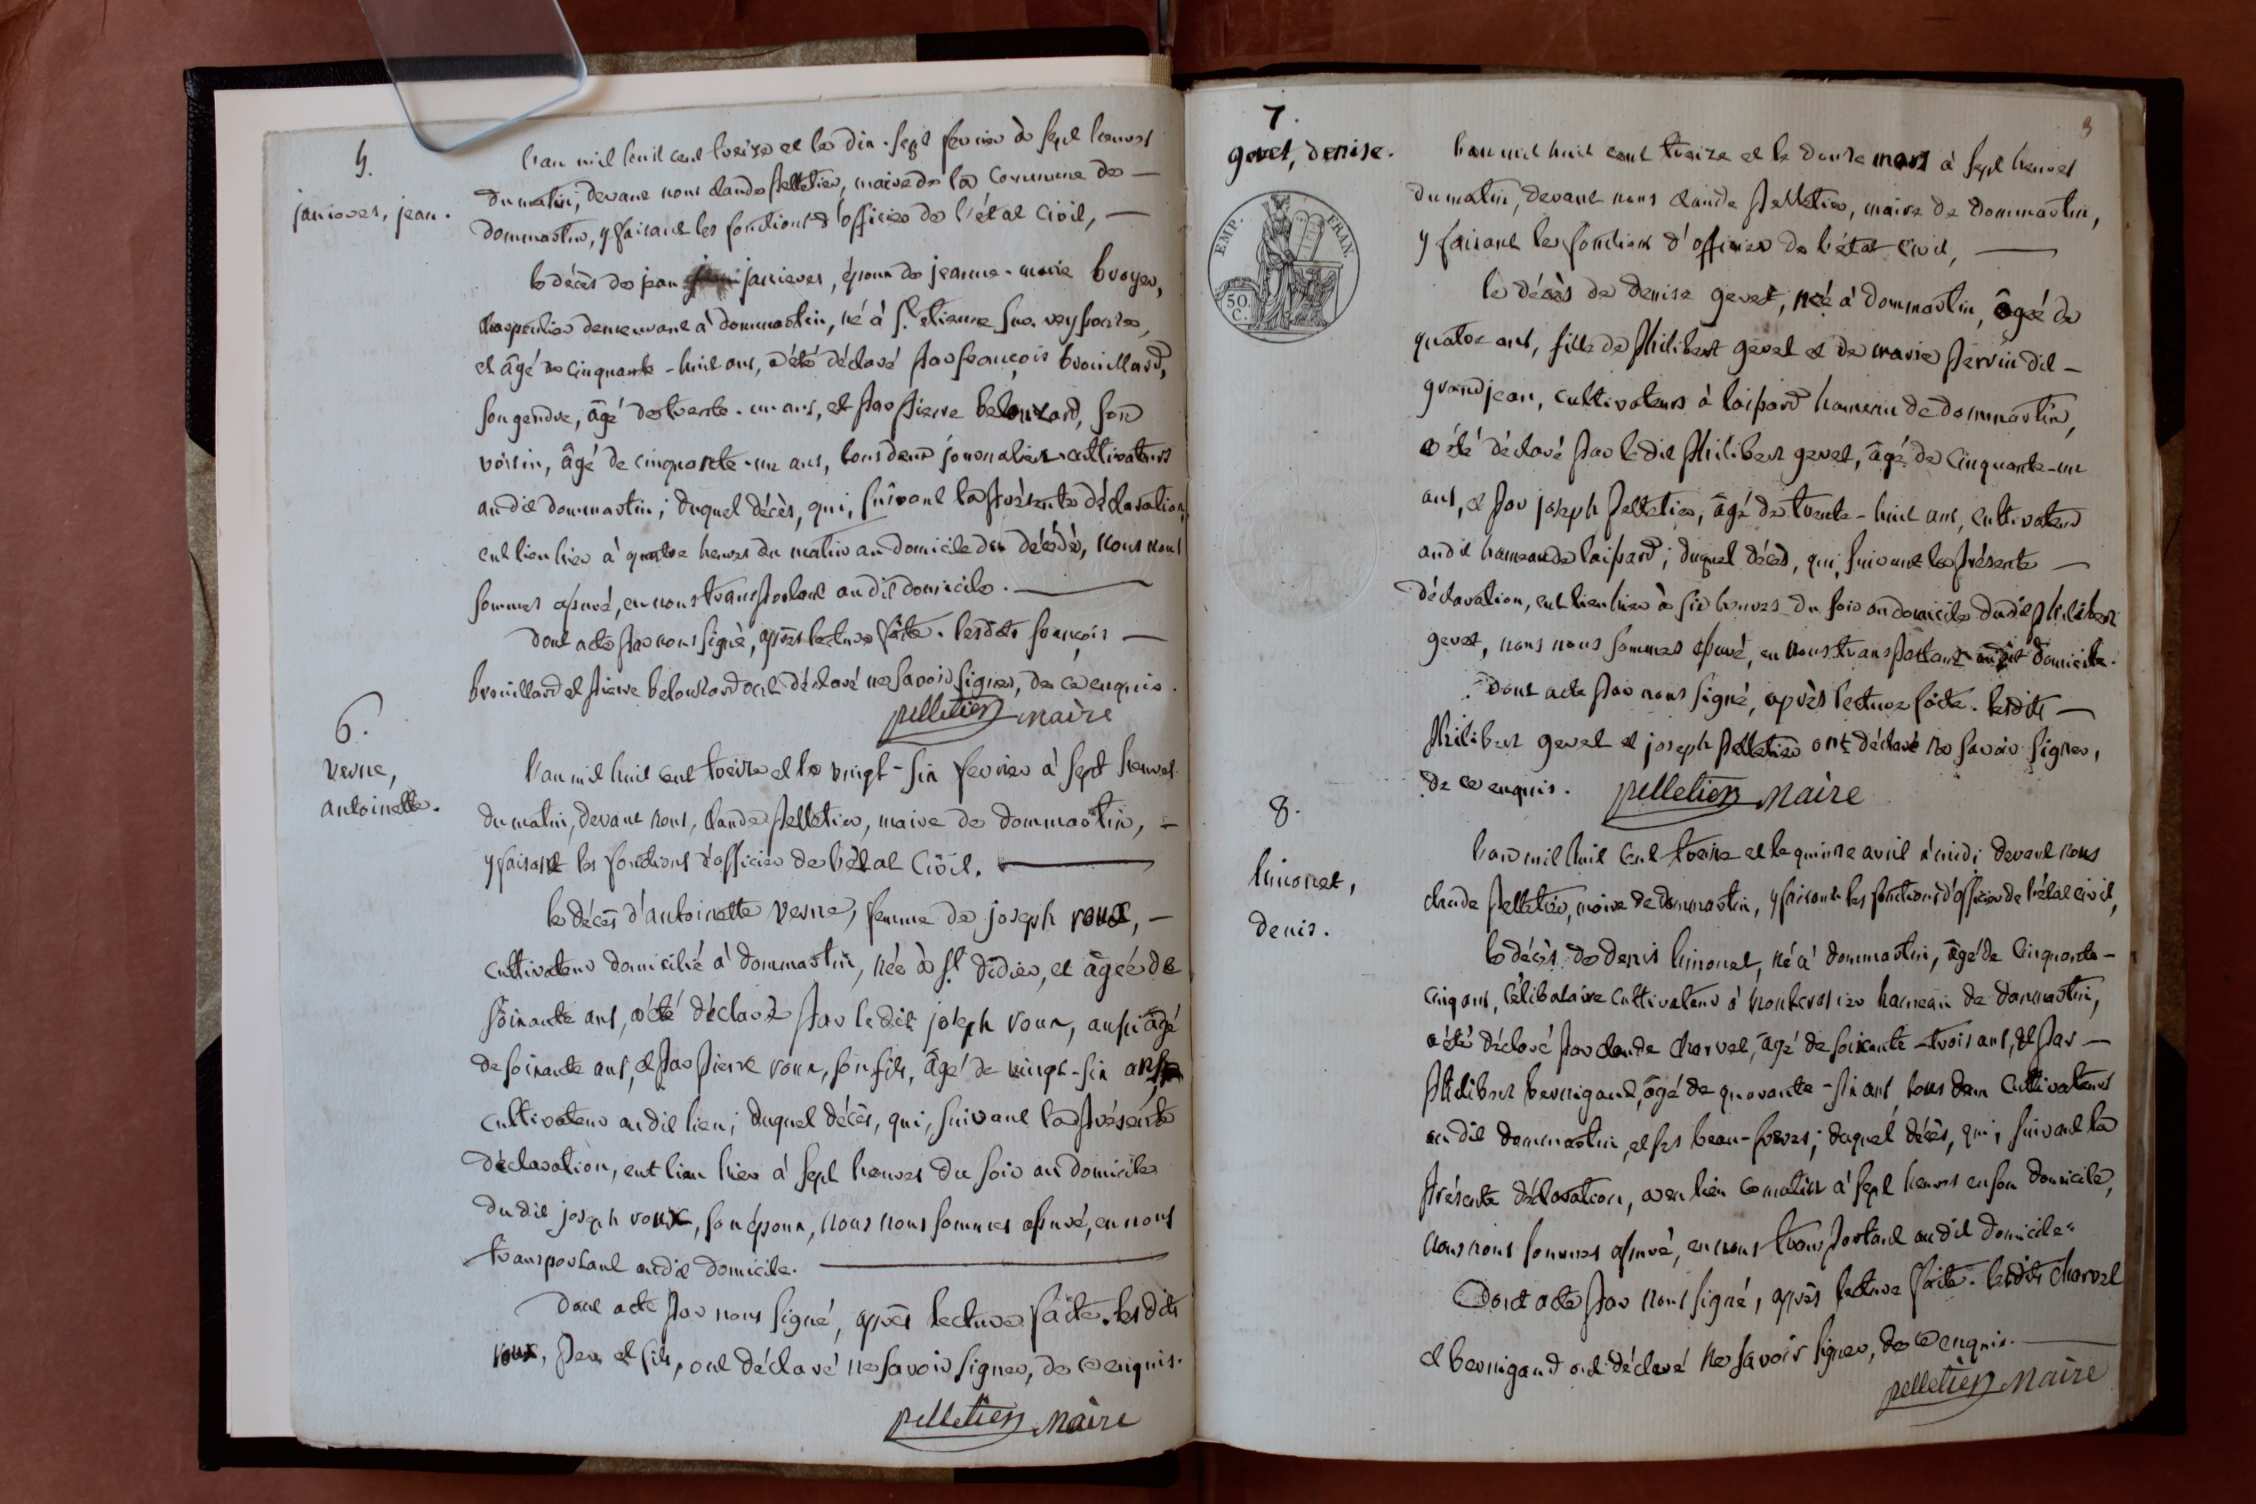 5.
janiover, jean.
l'an mil huit cent treize et le dix-sept fevrier à sept heures
du matin, devant nous claude pelletier, maire de la commune de —
dommartin, y faisant les fonctions d'officier de l'état civil, —
le décès de jean janiover, époux de jeanne-marie broyer,
charpentier demeurant à dommartin, né à St. etienne sur reyssouze,
et âgé de cinquante-huit ans, a été déclaré par françois brouillard,
son gendre, âgé de trente-un ans, et par pierre belouzard, son
voisin, âgé de cinquante-un ans, tous deux journaliers-cultivateurs
au dit dommartin; duquel décès, qui, suivant la présente déclaration,
eut lieu hier à quatre heures du matin au domicile du décédé, nous nous
sommes assuré, en nous transportant au dit domicile. —
dont acte par nous signé, après lecture faite. lesdits françois —
brouillard et pierre belouzard ont déclaré ne savoir signer, de ce enquis.
pelletier maire
6.
verne,
antoinette.
l'an mil huit cent treize et le vingt-six fevrier à sept heures
du matin, devant nous, claude pelletier, maire de dommartin, —
y faisant les fonctions d'officier de l'état civil. —
le décès d'antoinette verne, femme de joseph roux, —
cultivateur domicilié à dommartin, née à St. didier, et âgée de
soixante ans, a été déclaré par le dit joseph roux, aussi âgé
de soixante ans, et par pierre roux, son fils, âgé de vingt-six ans
cultivateur au dit lieu; duquel décès, qui, suivant la présente
déclaration, eut lieu hier à sept heures du soir au domicile
du dit joseph roux, son époux, nous nous sommes assuré, en nous
transportant au dit domicile. —
dont acte par nous signé, après lecture faite. lesdits
roux, père et fils, ont déclaré ne savoir signer, de ce enquis.
pelletier maire
3
7.
gevet, denise.
EMP. FRAN.
50. C.
l'an mil huit cent treize et le douze mars à sept heures
du matin, devant nous claude pelletier, maire de dommartin,
y faisant les fonctions d'officier de l'état civil, —
le décès de denise gevet, née à dommartin, âgée de
quatre ans, fille de philibert gevet et de marie perrin dit —
grandjean, cultivateurs à laipard hameau de dommartin,
a été déclaré par le dit philibert gevet, âgé de cinquante-un
ans, et par joseph pelletier, âgé de trente-huit ans, cultivateur
au dit hameau de laipard; duquel décès, qui, suivant la présente —
déclaration, eut lieu hier à six heures du soir au domicile du dit philibert
gevet, nous nous sommes assuré, en nous transportant au dit domicile.
dont acte par nous signé, après lecture faite. lesdits —
philibert gevet et joseph pelletier ont déclaré ne savoir signer,
de ce enquis. pelletier maire
8.
limonet,
denis.
l'an mil huit cent treize et le quinze avril à midi devant nous
claude pelletier, maire de dommartin, y faisant les fonctions d'officier de l'état civil,
le décès de denis limonet, né à dommartin, âgé de cinquante-
cinq ans, célibataire cultivateur à montcrosier hameau de dommartin,
a été déclaré par claude charvet, âgé de soixante-trois ans, et par —
philibert bernigaud, âgé de quarante-six ans tous deux cultivateurs
au dit dommartin, et ses beau-frères; duquel décès, qui, suivant la
présente déclaration, a eu lieu ce matin à sept heures en son domicile,
nous nous sommes assuré, en nous transportant au dit domicile.
Dont acte par nous signé, après lecture faite. lesdits charvet
et bernigaud ont déclaré ne savoir signer, de ce enquis. —
pelletier maire